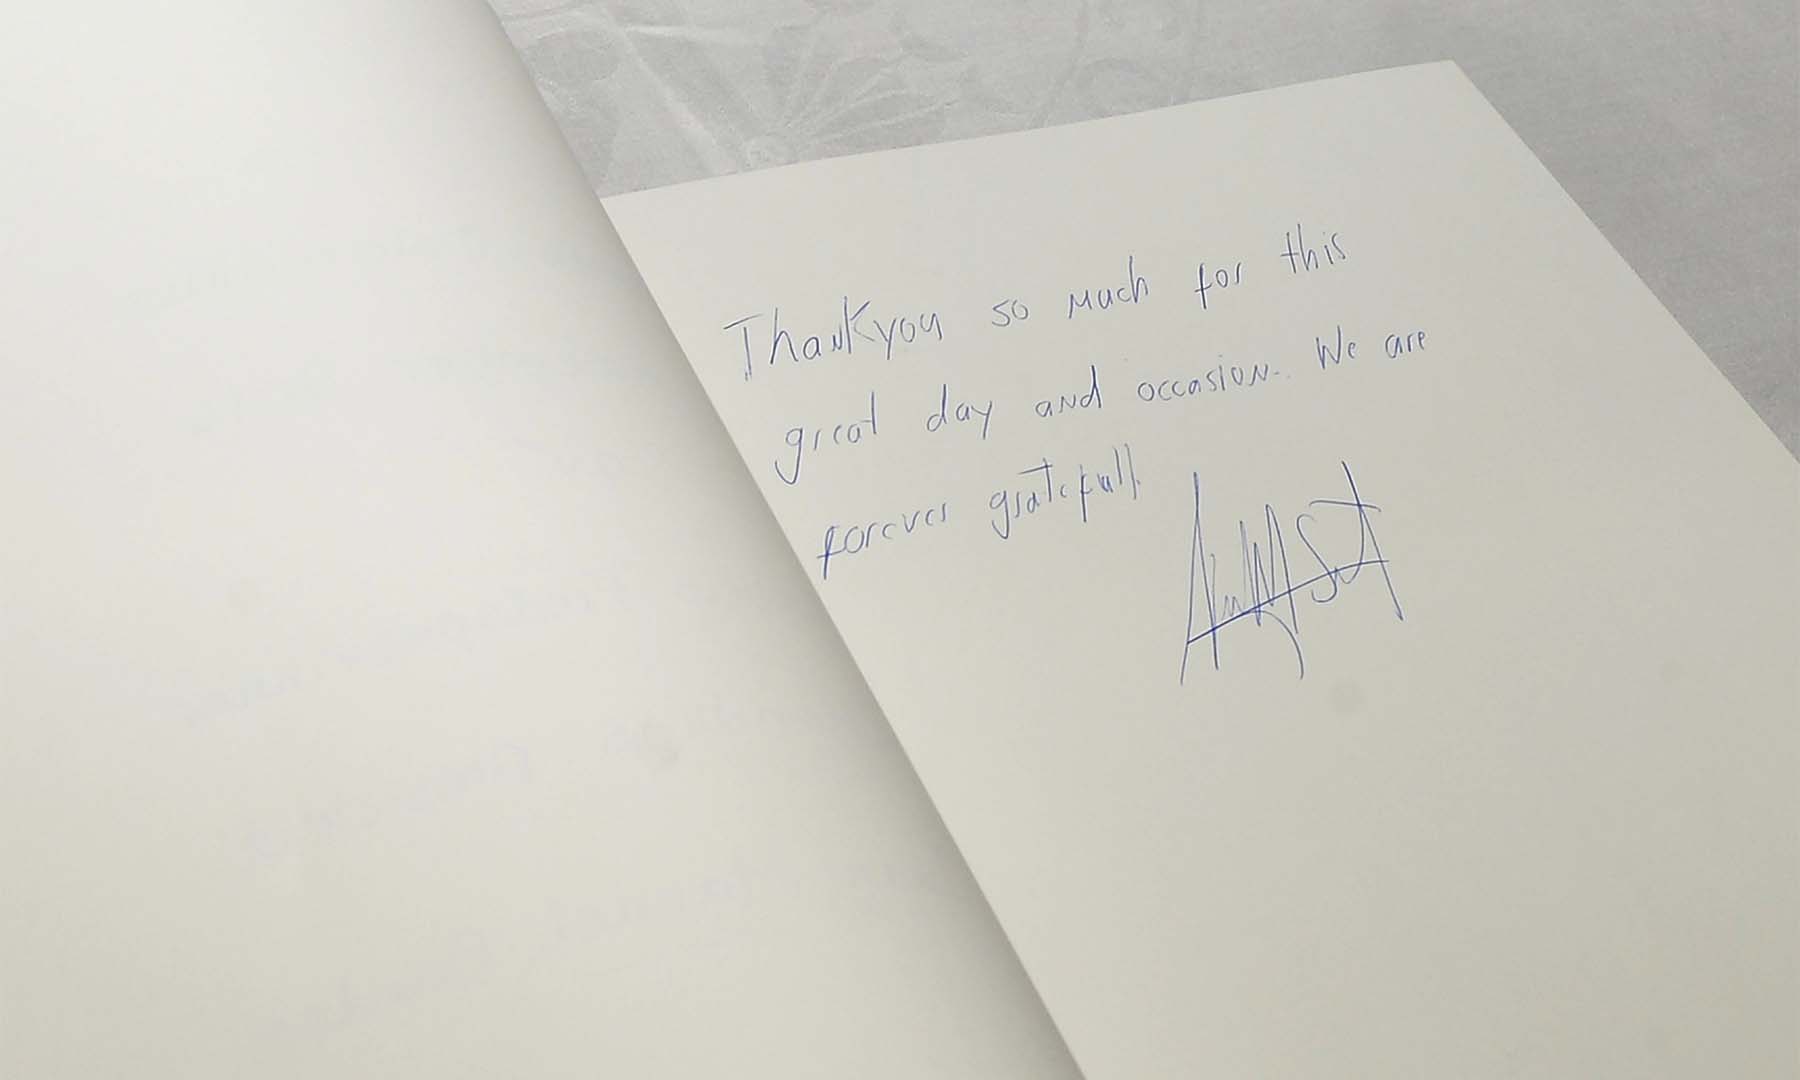 Thankyou so much for this
great day and occasion. We are
forever gratefull.